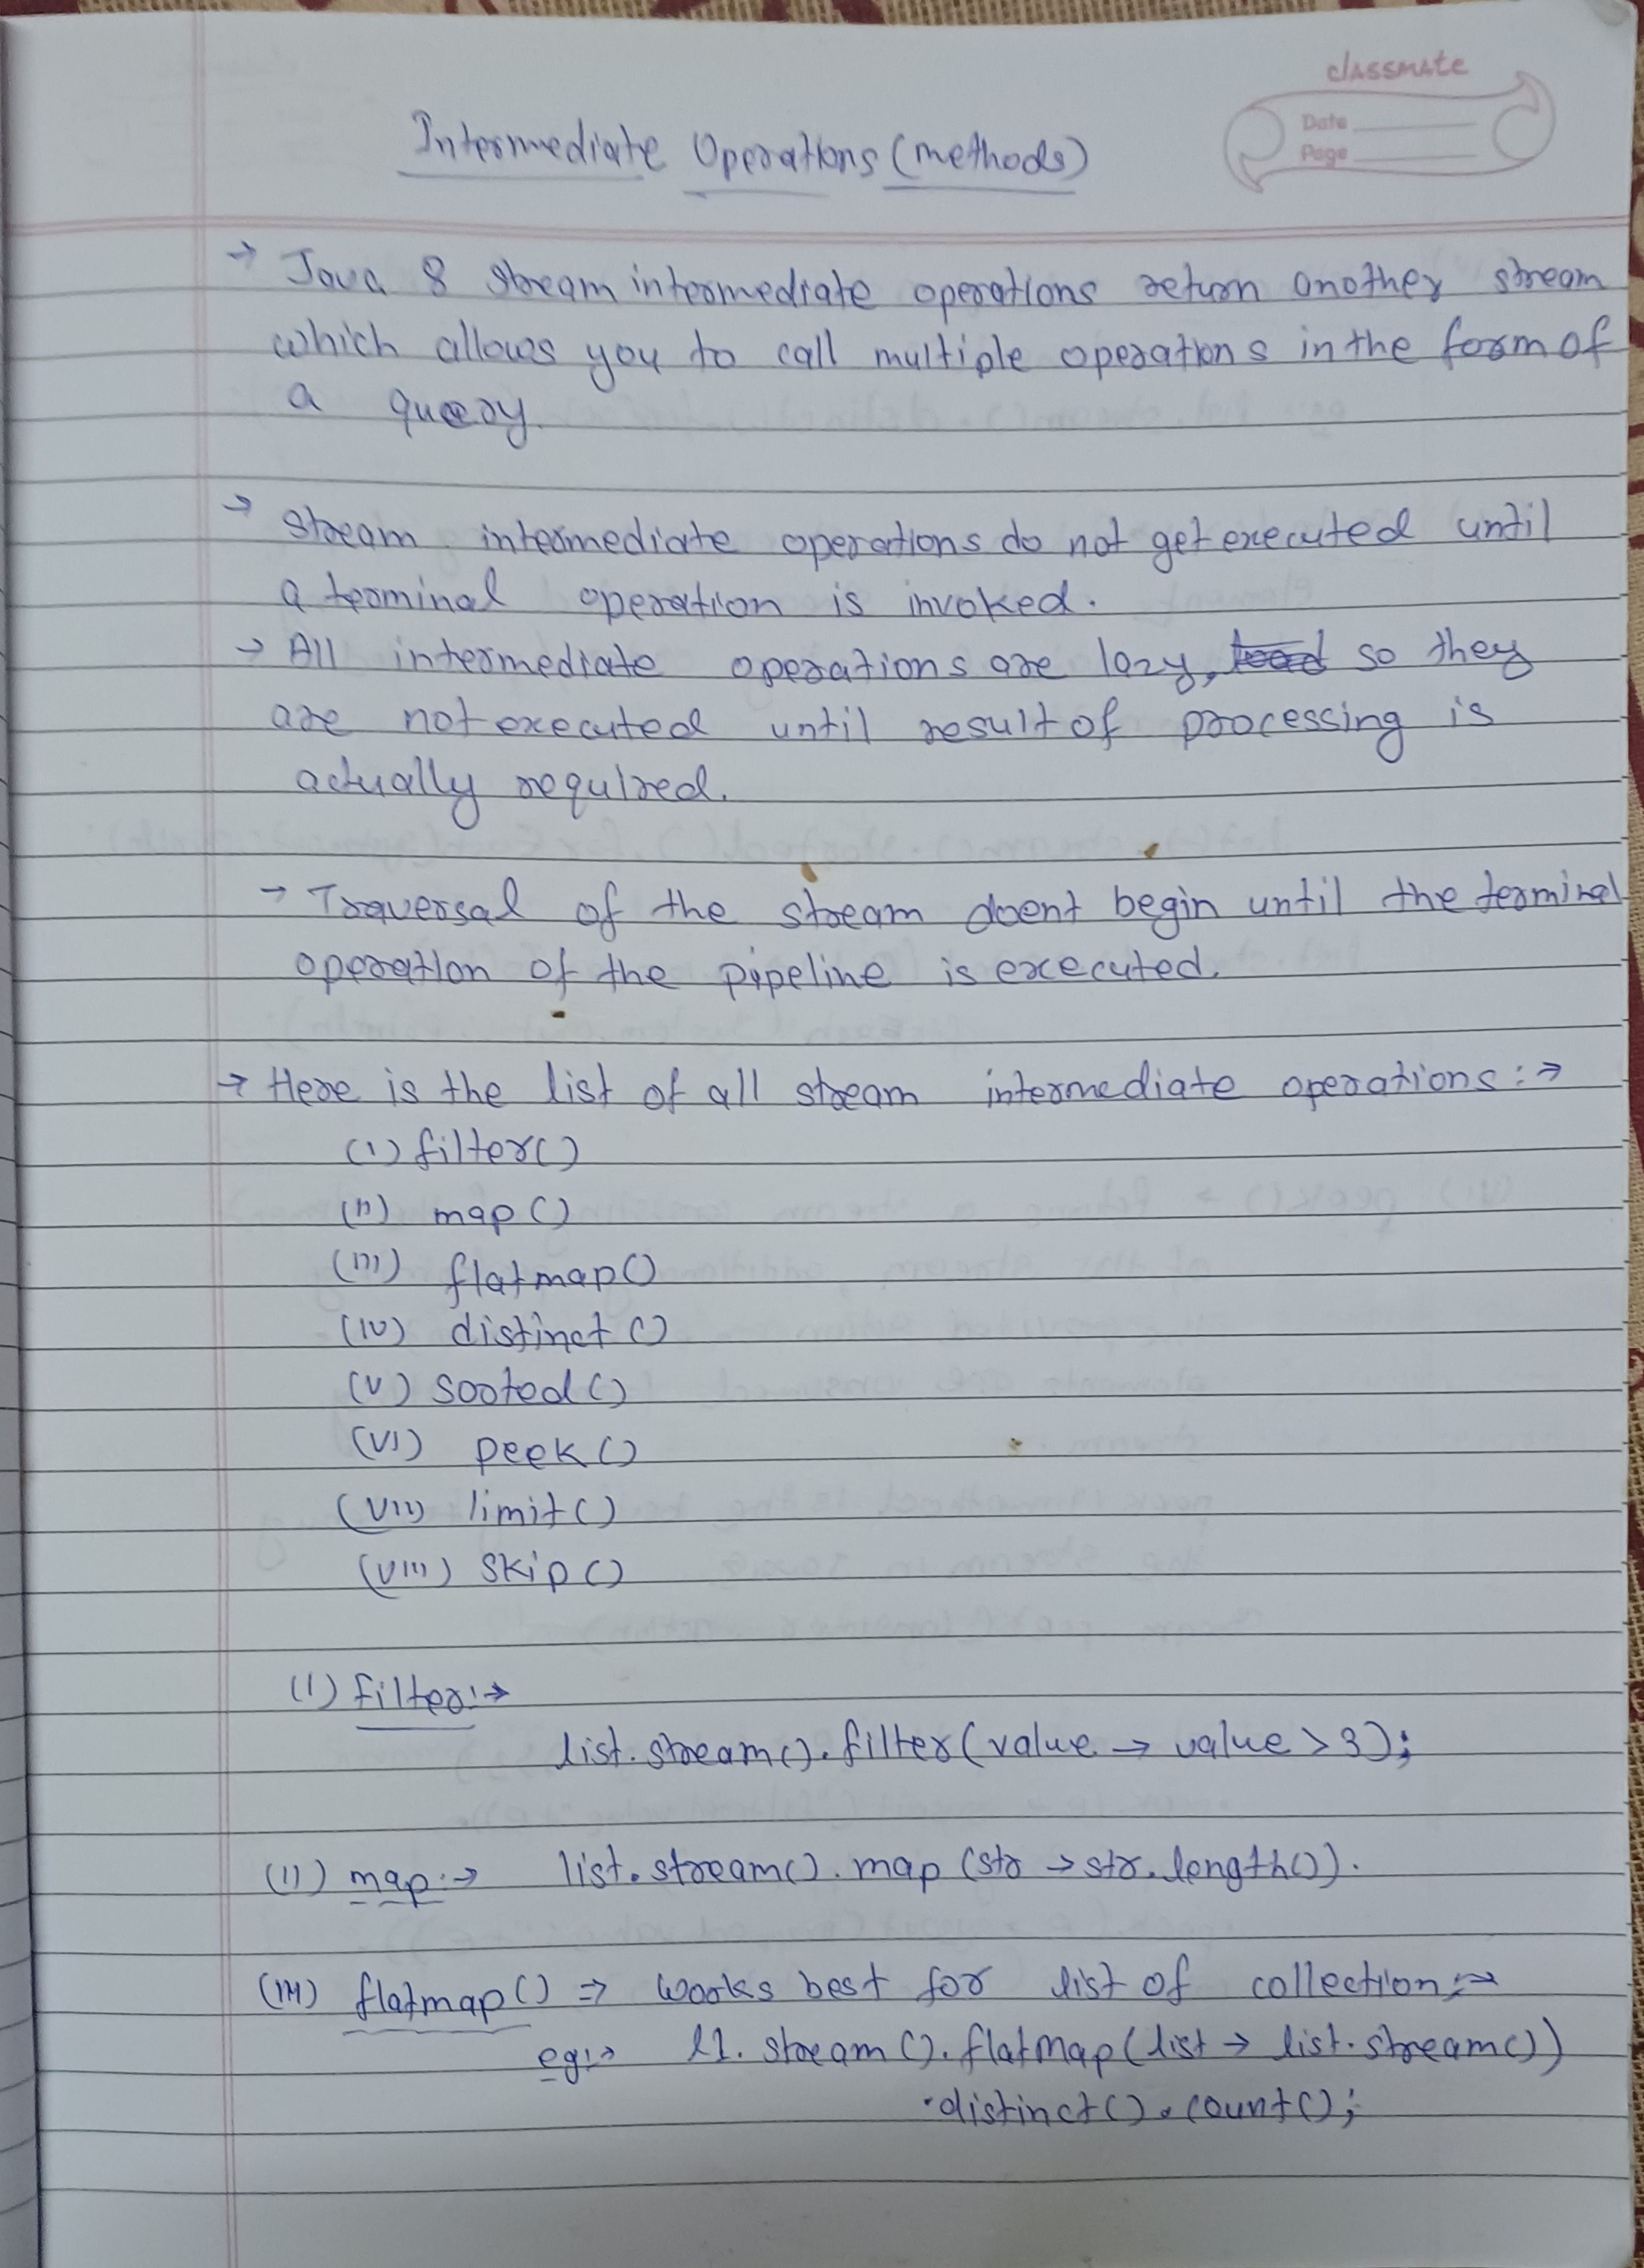 classmate
Date
Page
Intermediate Operations (methods)
→ Java 8 stream intermediate operations return another stream
which allows you to call multiple operations in the form of
a query.
→ stream intermediate operations do not get executed until
a terminal operation is invoked.
→ All intermediate operations are lazy, so they
are not executed until result of processing is
actually required.
→ Traversal of the stream doent begin until the terminal
operation of the pipeline is executed.
→ Here is the list of all stream intermediate operations :→
(i) filter()
(ii) map()
(iii) flatmap()
(iv) distinct()
(v) sorted()
(vi) peek()
(vii) limit()
(viii) skip()
(i) filter :→
list.stream().filter(value → value > 3);
(ii) map :→ list.stream().map(str → str.length()).
(iii) flatmap() ⇒ works best for list of collection :→
eg :→ l1.stream().flatMap(list → list.stream())
.distinct().count();